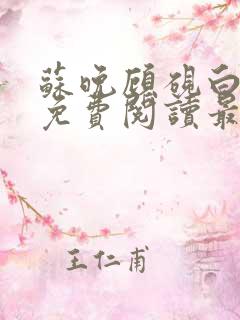 蘇晚顧硯白
免費閱讀最
王仁甫